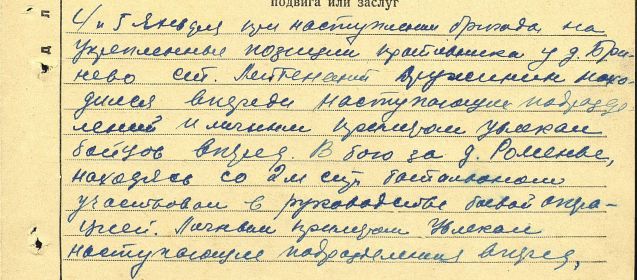 подвига или заслуг
4 и 5 января при наступлении бригады на
укрепленные позиции противника у д. Бри-
нево ст. Лейтенант Дружинин нахо-
дился впереди наступающих подразде-
лений и личным примером увлекал
бойцов вперед. В бою за д. Роменье,
находясь со 2м стр. батальоном
участвовал в руководстве боевой опера-
цией. Личным примером увлекал
наступающие подразделения вперед,